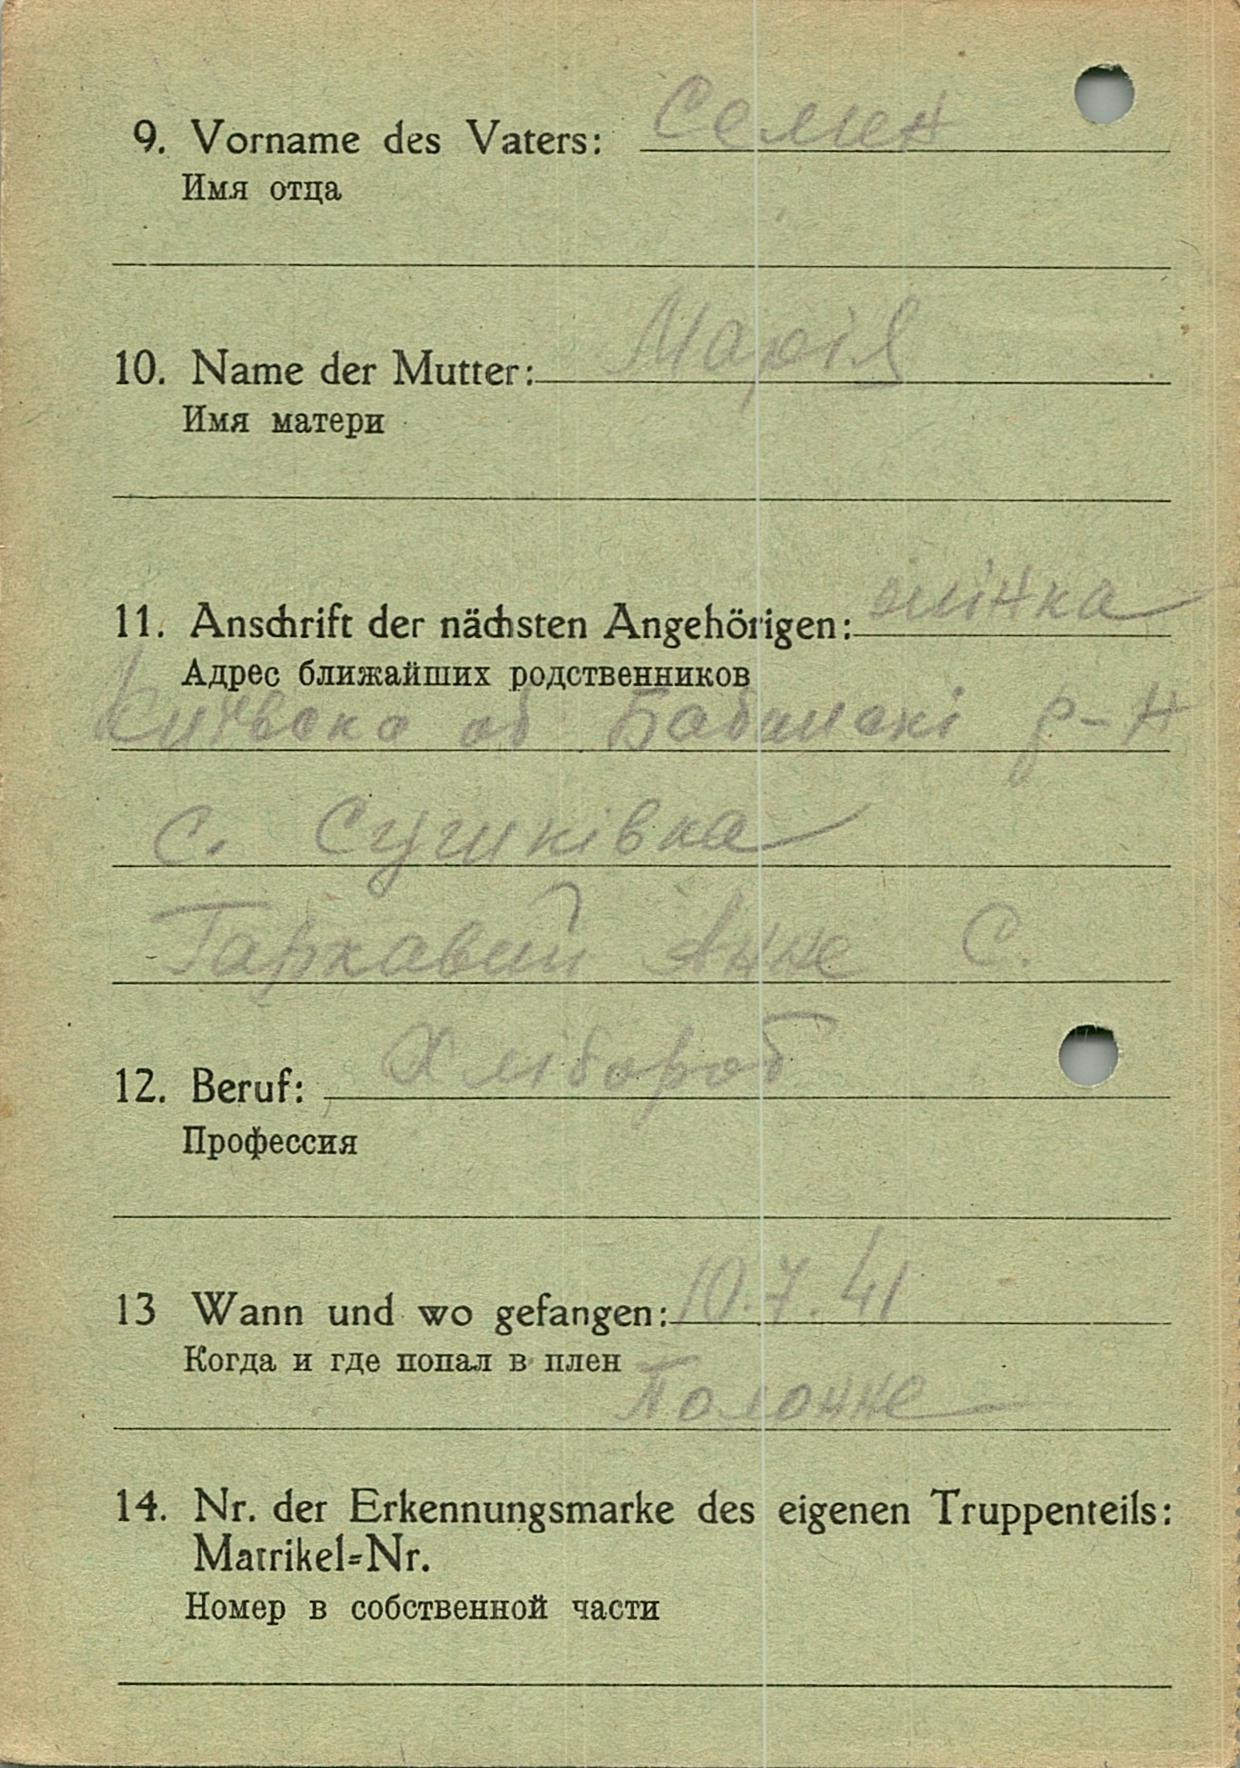 9. Vorname des Vaters: Семен
Имя отца
10. Name der Mutter: Марія
Имя матери
11. Anschrift der nächsten Angehörigen:
Адрес ближайших родственников
об Бабанскі р-н
с. Сушківка
Гаркавий Анне С.
12. Beruf: Хлібороб
Профессия
13 Wann und wo gefangen: 10.7.41
Когда и где попал в плен
Полонне
14. Nr. der Erkennungsmarke des eigenen Truppenteils:
Matrikel=Nr.
Номер в собственной части